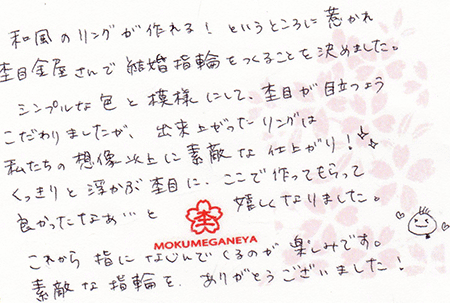 和風のリングが作れる！というところに惹かれ
杢目金屋さんで結婚指輪をつくることを決めました。
シンプルな色と模様にして、杢目が目立つよう
こだわりましたが、出来上がったリングは
私たちの想像以上に素敵な仕上がり！
くっきりと浮かぶ杢目に、ここで作ってもらって
良かったなあ…と 嬉しくなりました。
杢
MOKUMEGANEYA
これから指になじんでくるのが楽しみです。
素敵な指輪を、ありがとうございました！